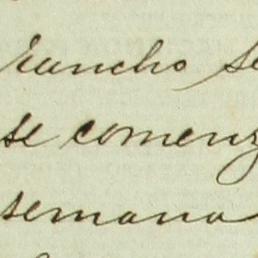 rancho se
se comenz
semana